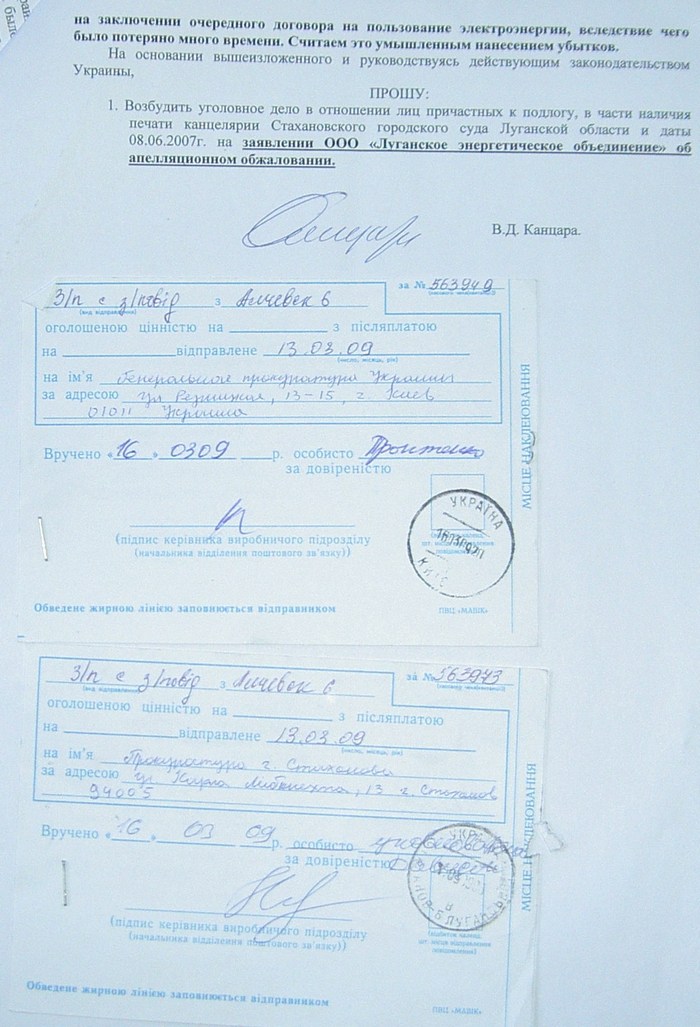 на заключении очередного договора на пользование электроэнергии, вследствие чего
было потеряно много времени. Считаем это умышленным нанесением убытков.
На основании вышеизложенного и руководствуясь действующим законодательством
Украины,
ПРОШУ:
1. Возбудить уголовное дело в отношении лиц причастных к подлогу, в части наличия
печати канцелярии Стахановского городского суда Луганской области и даты
08.06.2007г. на заявлении ООО «Луганское энергетическое объединение» об
апелляционном обжаловании.
В.Д. Канцара.
за № 563949
З/п с з/повід з Алчевск 6
(вид відправлення)
оголошеною цінністю на з післяплатою
на відправлене 13.03.09
(число, місяць, рік)
на ім'я Генеральная прокуратура Украины
за адресою ул Резницкая, 13-15, г. Киев
01011 Украина
Вручено «16» 0309 р. особисто
за довіреністю
УКРАЇНА
КИЇВ
(підпис керівника виробничого підрозділу
(начальника відділення поштового зв'язку))
МІСЦЕ НАКЛЕЮВАННЯ
Обведене жирною лінією заповнюється відправником
ПВЦ «МАШК»
за № 563943
З/п с з/повід з Алчевск 6
(вид відправлення)
оголошеною цінністю на з післяплатою
на відправлене 13.03.09
(число, місяць, рік)
на ім'я Прокуратура г. Стаханова
за адресою ул Карла Либкнехта, 13 г. Стаханов
94005
Вручено «16 03 09 р. особисто
за довіреністю
УКРАЇНА
(підпис керівника виробничого підрозділу
(начальника відділення поштового зв'язку))
МІСЦЕ НАКЛЕЮВАННЯ
Обведене жирною лінією заповнюється відправником
ПВЦ «МАШК»